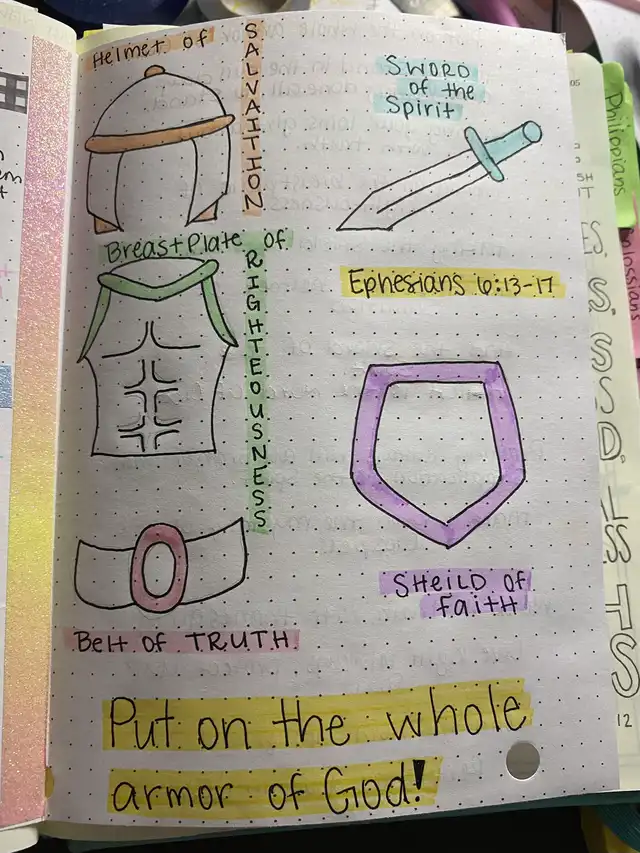 Helmet of
SALVAITION
SWORD
of the
Spirit
BreastPlate of
RIGHTEOUSNESS
Ephesians 6:13-17
SHEILD OF
FAITH
Belt of TRUTH
Put on the whole
armor of God!
Philippians
olossians
05
SH
T
ES.
S.
S
D.
12